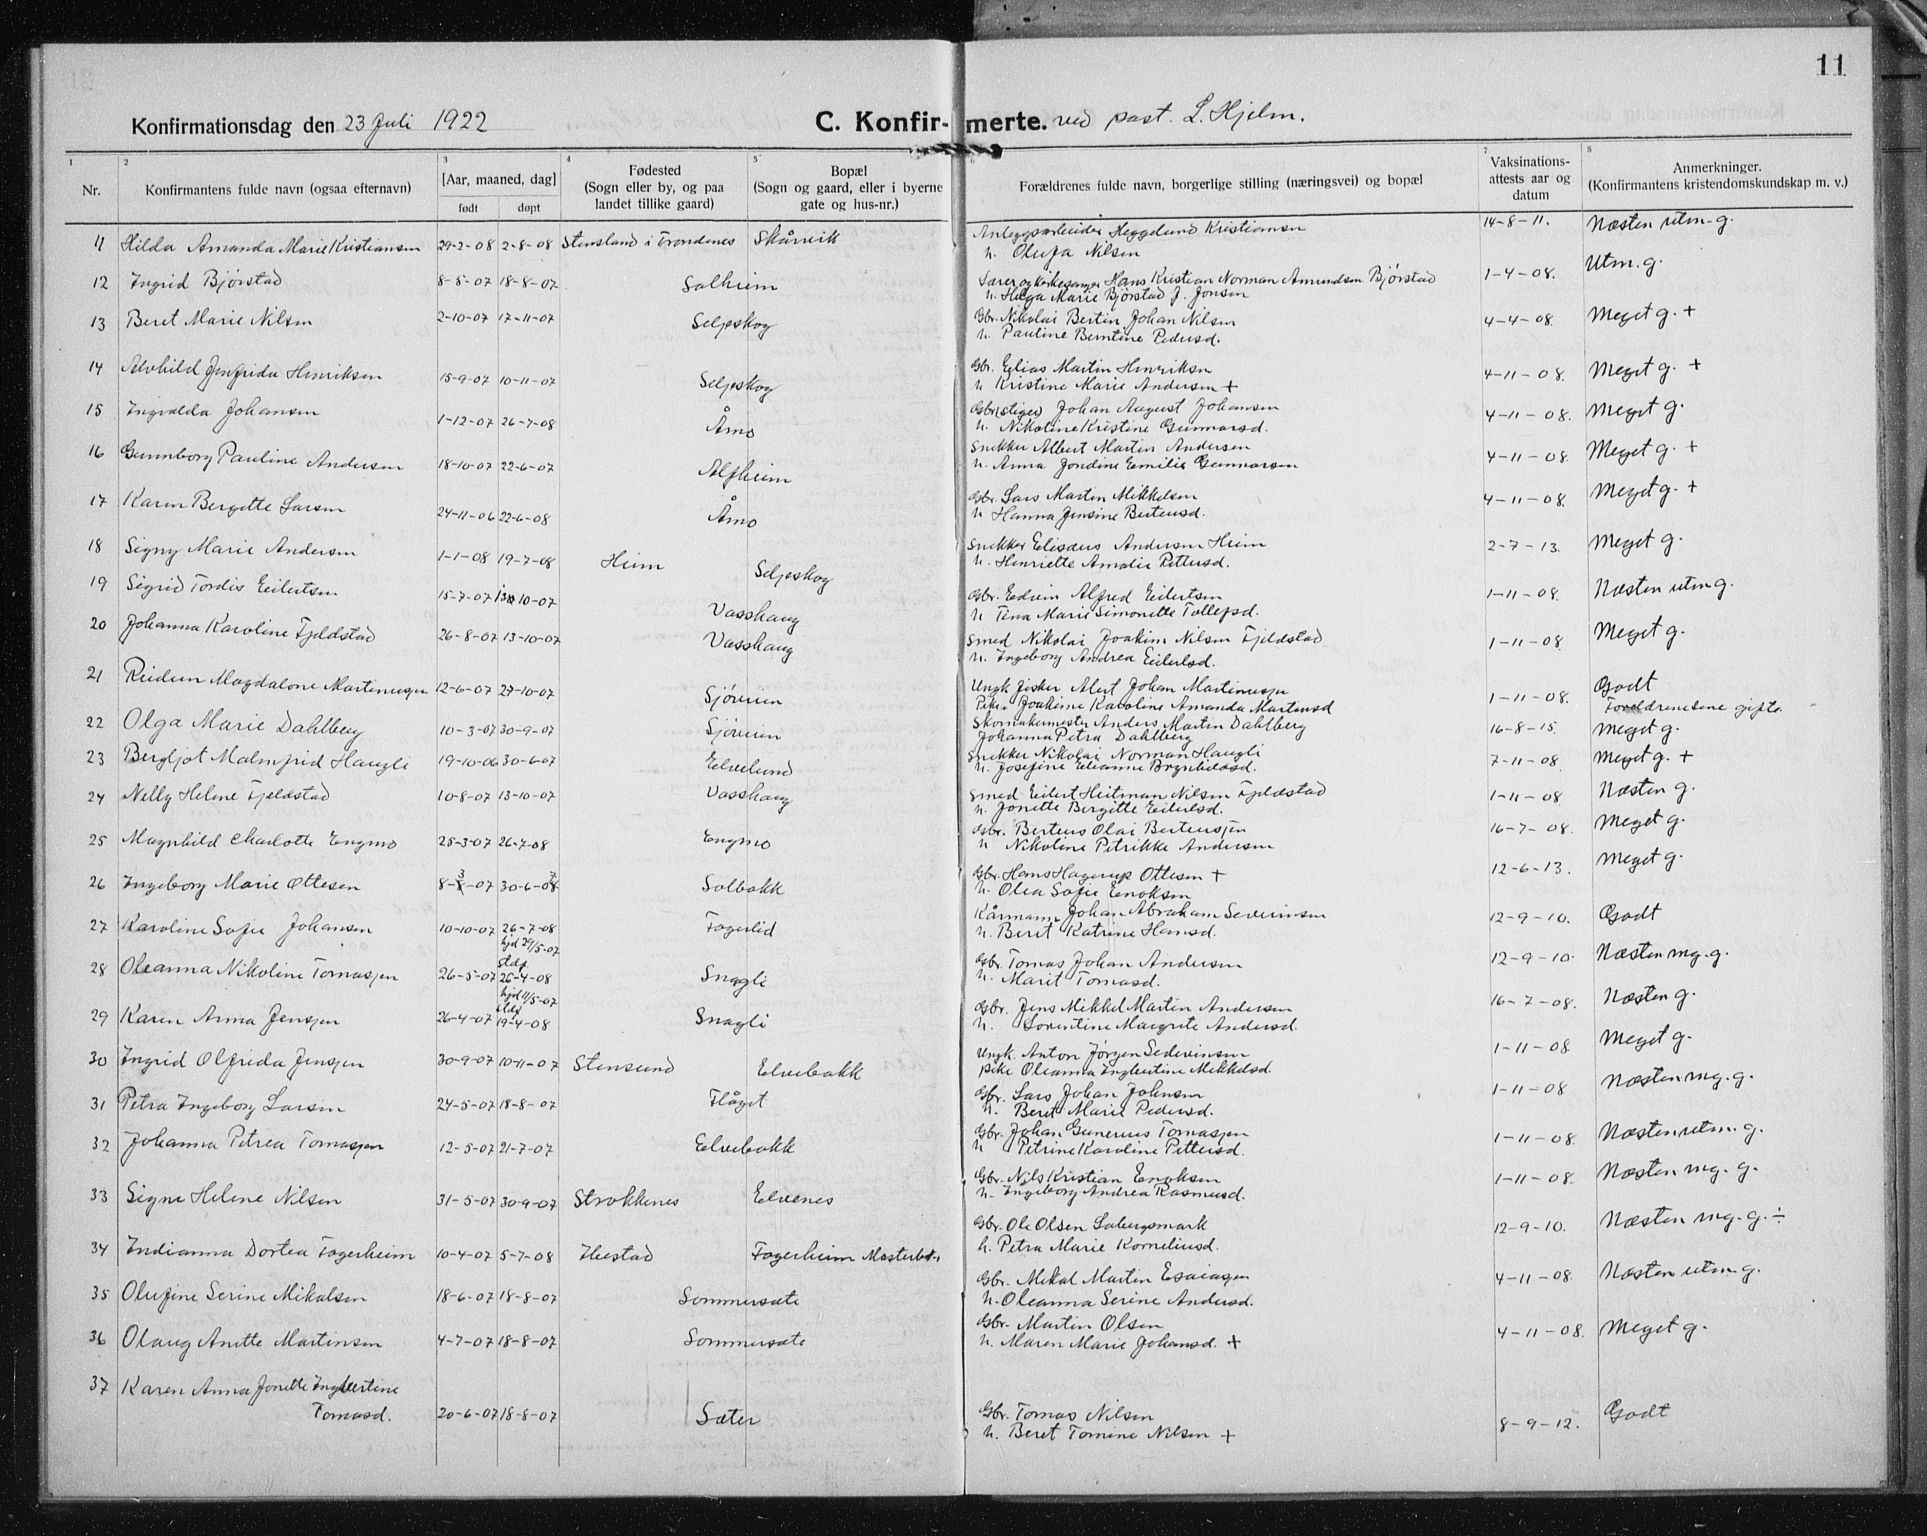 11
Konfirmationsdag den 23 Juli 1922 C. Konfirmerte. ved past. L. Hjelm.
1 2 3 4 5 6 7 8
Nr. Konfirmantens fulde navn (ogsaa efternavn) [Aar, maaned, dag] født døpt Fødested (Sogn eller by, og paa landet tillike gaard) Bopæl (Sogn og gaard, eller i byerne gate og hus-nr.) Forældrenes fulde navn, borgerlige stilling (næringsvei) og bopæl Vaksinations-attests aar og datum Anmerkninger. (Konfirmantens kristendomskundskap m. v.)
11 Hilda Amanda Marie Kristiansen 29-2-08 2-8-08 Stensland i Trondenes Skårvik Anlegsarbeider Heggelund Kristiansen 14-8-11. Næsten utm. g.
h. Olufa Nilsen
12 Ingrid Bjørstad 8-5-07 18-8-07 Solheim Lærer og kirkesanger Hans Kristian Norman Amundsen Bjørstad 1-4-08. Utm. g.
h. Helga Marie Bjørstad f. Jonsen
13 Beret Marie Nilsen 2-10-07 17-11-07 Seljeskog Gbr. Nikolai Bertin Johan Nilsen 4-4-08. Meget g. +
h. Pauline Berntine Pedersd.
14 Alvhild Jenfrida Henriksen 15-9-07 10-11-07 Seljeskog Gbr. Elias Martin Henriksen 4-11-08. Meget g. +
h. Kristine Marie Andersen +
15 Ingvalda Johansen 1-12-07 26-7-08 Åmo Gbr. Johan August Johansen 4-11-08. Meget g.
h. Nikoline Kristine Gunnarsd.
16 Gunnborg Pauline Andersen 18-10-07 22-6-07 Alfheim Snekker Albert Martin Andersen 4-11-08 Meget g. +
h. Anna Jondine Emilie Gunnarsen
17 Karen Bergitte Larsen 24-11-06 22-6-08 Åmo Gbr. Lars Martin Mikkelsen 4-11-08. Meget g. +
h. Hanna Jensine Bertensd.
18 Signy Marie Andersen 1-1-08 19-7-08 Heim Seljeskog Snekker Eliseus Andersen Heim 2-7-13. Meget g.
h. Henriette Amalie Pettersd.
19 Sigrid Tordis Eilertsen 15-7-07 13-10-07 Vasshaug Gbr. Edvin Alfred Eilertsen 1-11-08. Næsten utm g.
h Tina Marie Simonette Tollefsd.
20 Johanna Karoline Fjeldstad 26-8-07 13-10-07 Vasshaug Smed Nikolai Joakim Nilsen Fjeldstad 1-11-08. Meget g.
h. Ingeborg Andrea Eilertsd.
21 Reidun Magdalone Martinusen 12-6-07 27-10-07 Sjøveien Ungk. fisker Alert Johan Martinusen 1-11-08. Godt
Pike Joakime Karoline Amanda Martinsd Foreldrenesene gifte.
22 Olga Marie Dahlberg 10-3-07 30-9-07 Sjøveien Skomakermester Anders Martin Dahlberg 16-8-15. Meget g.
Johanna Petra Dahlberg
23 Bergljot Malmfrid Haugli 19-10-06 30-6-07 Elvelund Snekker Nikolai Norman Haugli 7-11-08. Meget g. +
h. Josefine Elianne Brynhildsd.
24 Nelly Helene Fjeldstad 10-8-07 13-10-07 Vasshaug Smed Eilert Heitman Nilsen Fjeldstad 1-11-08 Næsten g.
h. Jonette Bergitte Eilertsd.
25 Magnhild Charlotte Engmo 25-3-07 26-7-08 Engmo Gbr. Berteus Olai Berteussen 16-7-08. Meget g.
h Nikoline Petrikke Andersen
26 Ingeborg Marie Ottesen 8-3-07 30-6-07 Solbakk Gbr. Hans Hagerup Ottesen + 12-6-13. Meget g.
h. Olea Sofie Enoksen
27 Karoline Sofie Johansen 10-10-07 26-7-08 Fagerlid Kårmann Johan Abraham Severinsen 12-9-10. Godt
h. Beret Katrine Hansd.
28 Oleanna Nikoline Tomassen 26-5-07 hjd 29/5-07 stadf 26-4-08 Snagli Gbr. Tomas Johan Andersen 12-9-10. Næsten mg. g.
h. Marit Tomasd.
29 Karen Anna Jenssen 26-4-07 hjd 11/5-07 19-4-08 Snagli Gbr. Jens Mikkel Martin Andersen 16-7-08. Næsten g.
h. Lorentine Margrete Andersd.
30 Ingrid Olfrida Jenssen 30-9-07 10-11-07 Stensund Elvebakk Ungk. Anton Jørgen Sedevinsen 1-11-08 Meget g.
pike Oleanna Ingbertine Mikkelsd
31 Petra Ingeborg Larsen 24-5-07 18-8-07 Flåget Gbr. Lars Johan Johnsen 1-11-08 Næsten mg. g.
h. Beret Marie Pedersd.
32 Johanna Petrea Tomassen 12-5-07 21-7-07 Elvebakk Gbr. Johan Gunerius Tomassen 1-11-08. Næsten utm. g.
h Petrine Karoline Pettersd.
33 Signe Helene Nilsen 31-5-07 30-9-07 Strokkenes Elvenes Gbr. Nils Kristian Enoksen 1-11-08. Næsten mg. g.
h. Ingeborg Andrea Rasmusd.
34 Indianna Dortea Fagerheim 10-4-07 5-7-08 Hestad Fagerheim Gbr. Ole Olsen Labergsmark 12-9-10. Næsten mg. g. ÷
h. Petra Marie Korneliusd.
35 Olufine Serine Mikalsen 18-6-07 18-8-07 Sommersæte Gbr. Mikal Martin Esaiasen 4-11-08. Næsten utm. g.
h. Oleanna Serine Andersd.
36 Olaug Anette Martinsen 4-7-07 18-8-07 Sommersæte Gbr. Martin Olsen 4-11-08. Meget g.
h. Maren Marie Johansd. +
37 Karen Anna Jonette Ingbertine
Tomasd. 20-6-07 18-8-07 Sæter Gbr. Tomas Nilsen 8-9-12. Godt
h. Beret Tomine Nilsen +